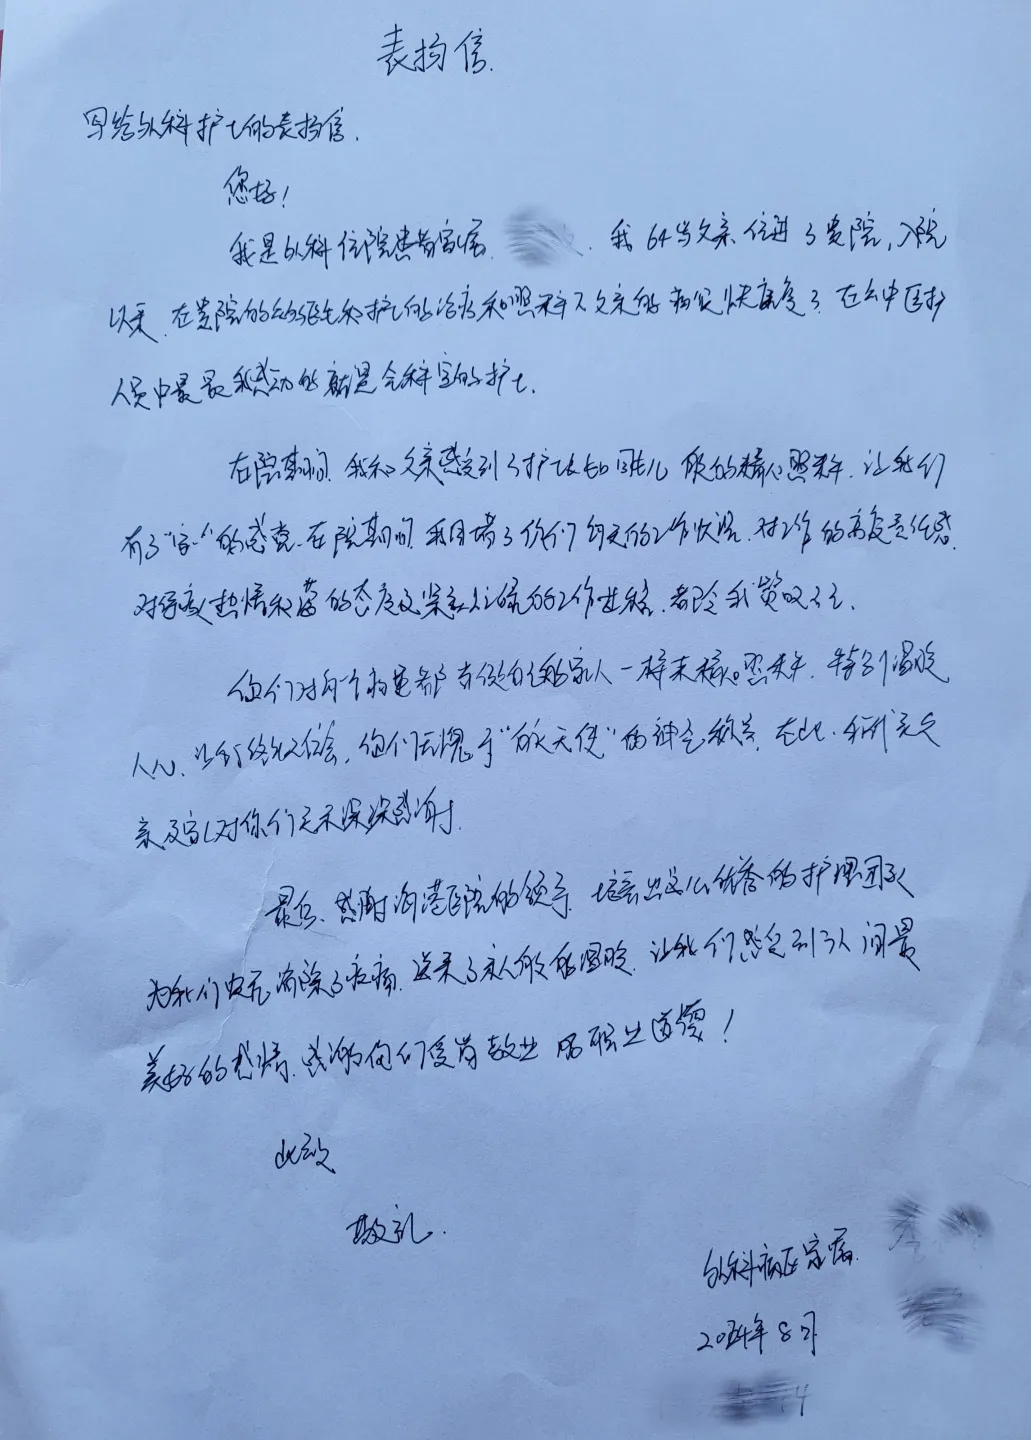 表扬信.
写给外科护士的表扬信.
您好!
我是外科住院患者家属 . 我64岁父亲住进了贵院,入院
以来.在贵院的 医生和护士的治疗和照料下父亲的病很快康复了.在 中医护
人员中最 我感动的就是 科室的护士.
在院期间.我和父亲感受到了护士长如 儿般的精心照料.让我们
有了"家"的感觉.在院期间.我目睹了你们每天的工作状况.对工作的高度责任感.
对待 热情和蔼的态度及紧 的工作 .都令我赞叹不已.
你们对每个病患都当做自己的家人一样来精心照料.特别温暖
人心. ,你们无愧于"白衣天使"的神圣称号.在此.我代表父
亲及家人对你们表示深深感谢.
最后.感谢海港医院的领导.培养出这么优秀的护理团队
为我们 消除了疼痛.送来了亲人般的温暖.让我们感受到了人间最
美好的感情.感谢你们 敬业 的职业道德!
此致
敬礼.
外科病 家属.
2024年8月
4